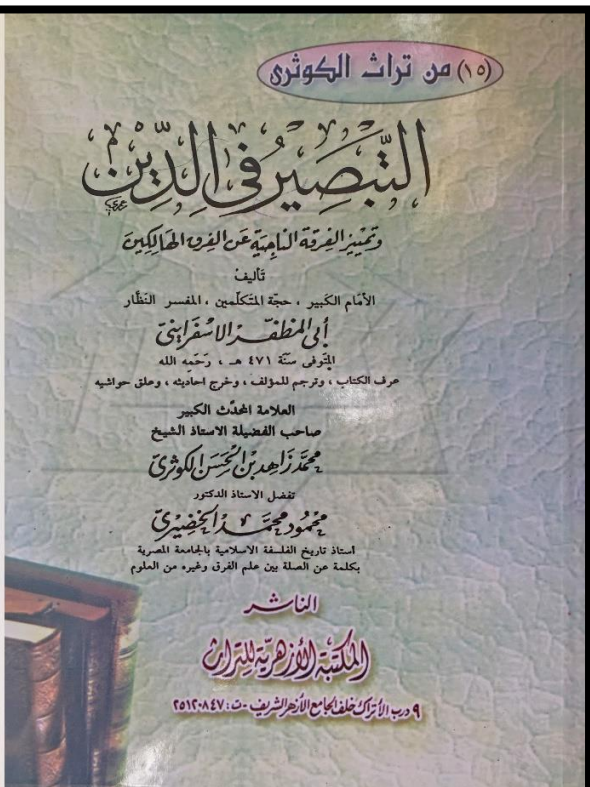 (١٥) من تراث الكوثرى
التَّبصِيرُ فِى الدِّين
وتمييز الفرقة الناجية عن الفرق الهالكين
تأليف
الأمام الكبير ، حجّة المتكلّمين ، المفسر النظّار
أبى المظفّر الاسفراينىّ
المتوفى سنّة ٤٧١ هـ ، رحَمه الله
عرف الكتاب ، وترجم للمؤلف ، وخرج احاديثه ، وعلق حواشيه
العلامة المحدّث الكبير
صاحب الفضيلة الاستاذ الشيخ
محمَّد زَاهِد بن الحَسَن الكوثرىّ
تفضل الاستاذ الدكتور
محمُود محمَّد الخضيرىّ
أستاذ تاريخ الفلسفة الاسلامية بالجامعة المصرية
بكلمة عن الصلة بين علم الفرق وغيره من العلوم
الناشر
المكتبة الأزهريّة للتراث
٩ درب الأتراك خلف الجامع الأزهر الشريف - ت : ٢٥١٢٠٨٤٧